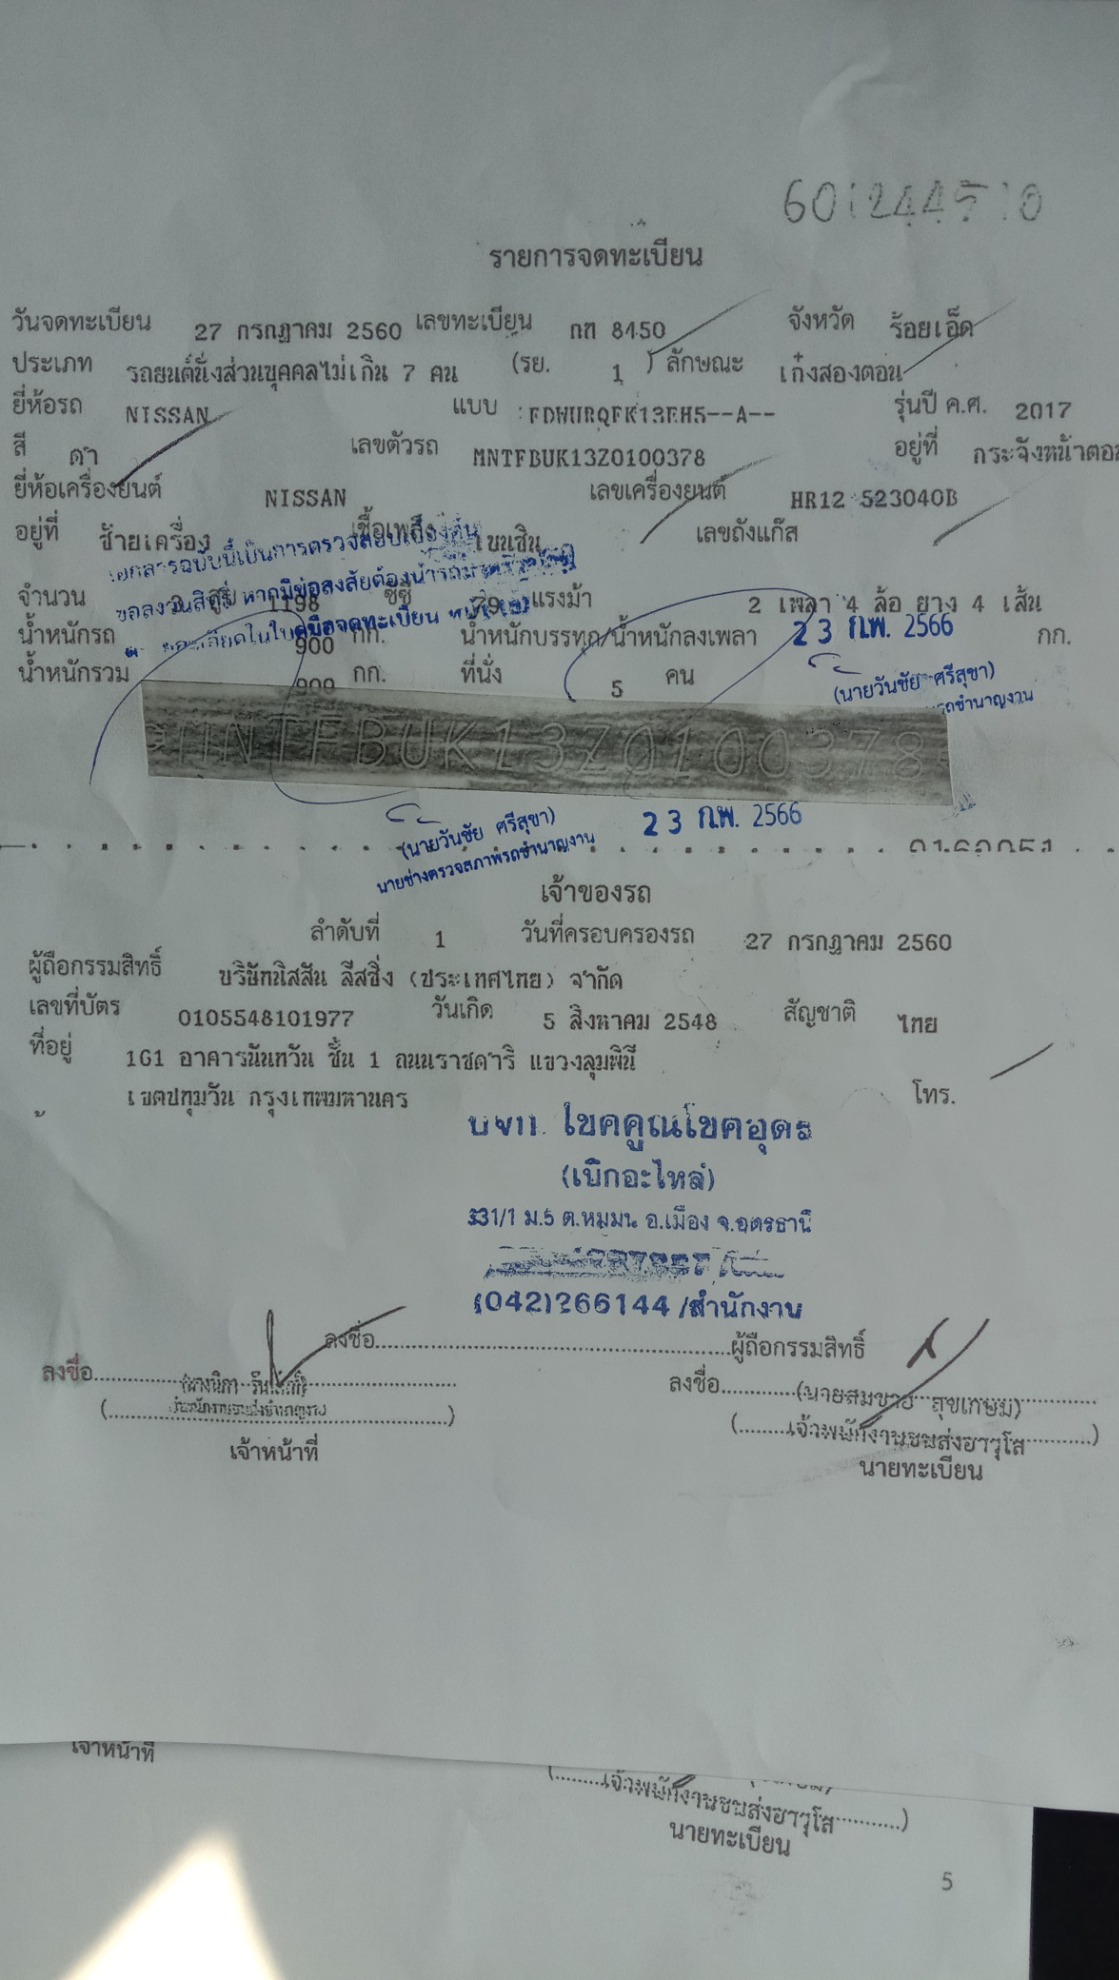 รายการจดทะเบียน
วันจดทะเบียน 27 กรกฎาคม 2560 เลขทะเบียน กต 8450 จังหวัด ร้อยเอ็ด
ประเภท รถยนต์นั่งส่วนบุคคลไม่เกิน 7 คน (รย. 1 ) ลักษณะ เก๋งสองตอน
ยี่ห้อรถ NISSAN แบบ รุ่นปี ค.ศ. 2017
สี ดำ เลขตัวรถ MNTFBUK13Z0100378 อยู่ที่ กระจังหน้าตอน
ยี่ห้อเครื่องยนต์ NISSAN เลขเครื่องยนต์ HR12 523040B
อยู่ที่ ซ้ายเครื่อง เชื้อเพลิง เบนซิน เลขถังแก๊ส
เอกสารฉบับนี้เป็นการตรวจสอบเบื้องต้น
ของวันสิทธิ์ หากมีข้อสงสัยต้องนำรถมา
จำนวน 3 สูบ 1198 ซีซี 79 แรงม้า 2 เพลา 4 ล้อ ยาง 4 เส้น
น้ำหนักรถ 900 กก. น้ำหนักบรรทุก/น้ำหนักลงเพลา กก.
23 ก.พ. 2566
น้ำหนักรวม 900 กก. ที่นั่ง 5 คน
(นายวันชัย ศรีสุขา)
MNTFBUK13Z0100378
23 ก.พ. 2566
(นายวันชัย ศรีสุขา)
นายช่างตรวจสภาพรถชำนาญงาน
เจ้าของรถ
ลำดับที่ 1 วันที่ครอบครองรถ 27 กรกฎาคม 2560
ผู้ถือกรรมสิทธิ์ บริษัทนิสสัน ลีสซิ่ง (ประเทศไทย) จำกัด
เลขที่บัตร 0105548101977 วันเกิด 5 สิงหาคม 2548 สัญชาติ ไทย
ที่อยู่ 161 อาคารนันทวัน ชั้น 1 ถนนราชดำริ แขวงลุมพินี
เขตปทุมวัน กรุงเทพมหานคร โทร.
บจก. โชคคูณโชคอุดร
(เบิกอะไหล่)
331/1 ม.5 ต.หมูม่น อ.เมือง จ.อุดรธานี
(042)266144 /สำนักงาน
ลงชื่อ ผู้ถือกรรมสิทธิ์
ลงชื่อ ลงชื่อ
(นายสมชาย สุขเกษม)
เจ้าพนักงานขนส่งอาวุโส
เจ้าหน้าที่ นายทะเบียน
เจ้าหน้าที่
เจ้าพนักงานขนส่งอาวุโส
นายทะเบียน
5